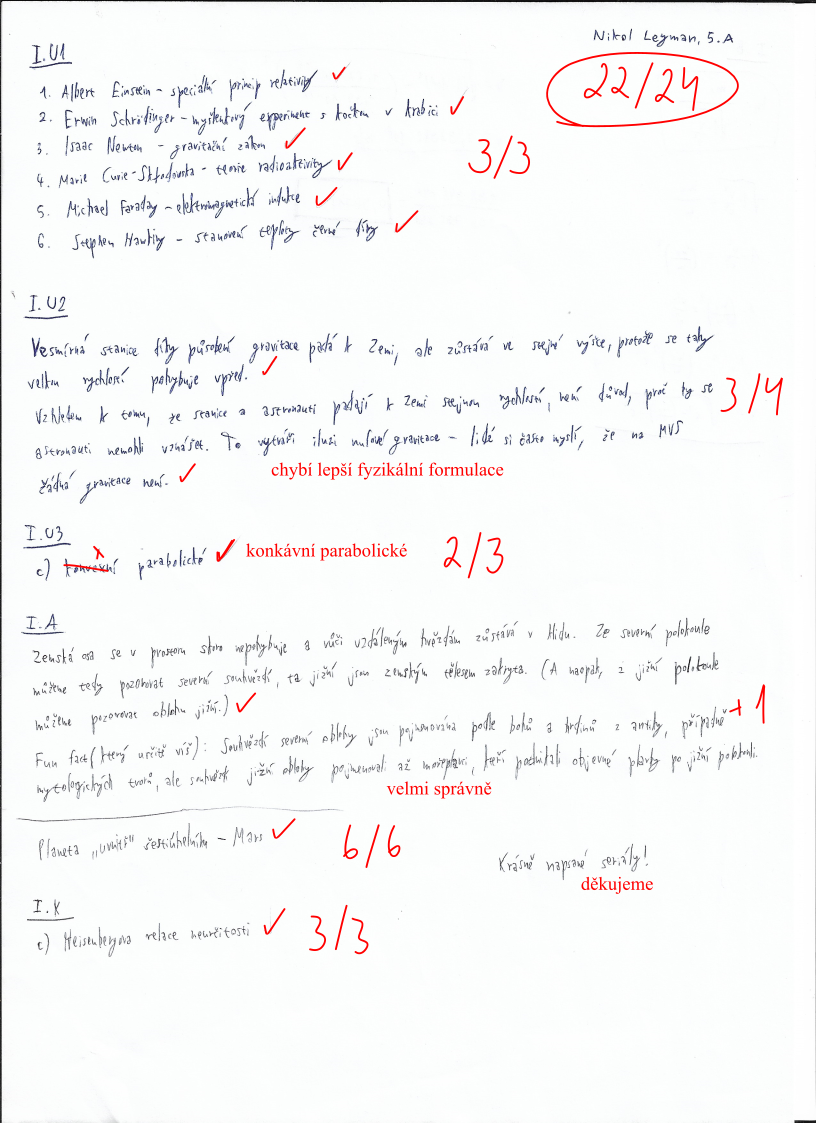 Nikol Legman, 5.A
22/24
I.U1
1. Albert Einstein - speciální princip relativity
2. Erwin Schrödinger - myšlenkový experiment s kočkou v krabici
3. Isaac Newton - gravitační zákon
3/3
4. Marie Curie-Skłodowska - teorie radioaktivity
5. Michael Faraday - elektromagnetická indukce
6. Stephen Hawking - stanovení teploty černé díry
I.U2
Vesmírná stanice díky působení gravitace padá k Zemi, ale zůstává ve stejné výšce, protože se taky
velkou rychlostí pohybuje vpřed.
Vzhledem k tomu, že stanice a astronauti padají k Zemi stejnou rychlostí, není důvod, proč by se
3/4
astronauti nemohli vznášet. To vytváří iluzi nulové gravitace - lidé si často myslí, že na MVS
chybí lepší fyzikální formulace
žádná gravitace není.
I.U3
c) konvexní parabolické
x
konkávní parabolické
2/3
I.A
Zemská osa se v prostoru skoro nepohybuje a vůči vzdáleným hvězdám zůstává v klidu. Ze severní polokoule
můžeme tedy pozorovat severní souhvězdí, ta jižní jsou zemským tělesem zakryta. (A naopak, z jižní polokoule
můžeme pozorovat oblohu jižní.)
+1
Fun fact (který určitě víš): Souhvězdí severní oblohy jsou pojmenována podle bohů a hrdinů z antiky, případně
mytologických tvorů, ale souhvězdí jižní oblohy pojmenovali až mořeplavci, kteří podnikali objevné plavby po jižní polokouli.
velmi správně
Planeta „uvnitř" šestiúhelníku - Mars
6/6
Krásně napsané seriály!
děkujeme
I.K
c) Heisenbergova relace neurčitosti
3/3